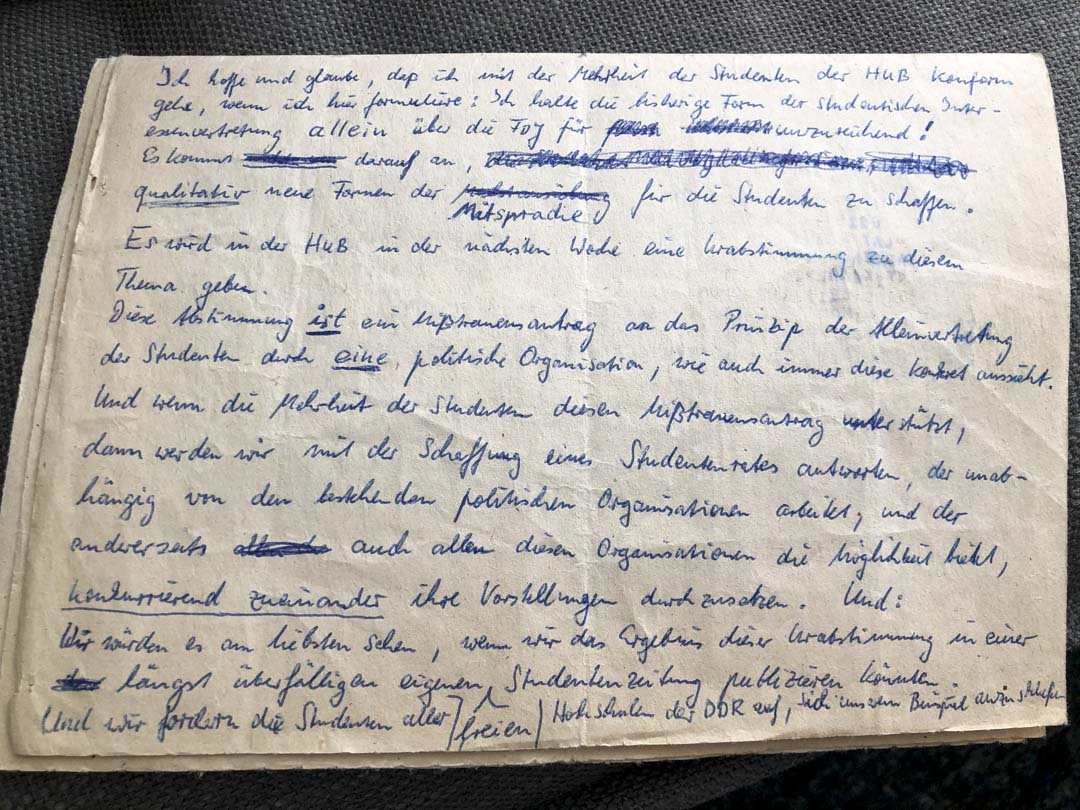 Ich hoffe und glaube, daß ich mit der Mehrheit der Studenten der HUB konform
gehe, wenn ich hier formuliere: Ich halte die bisherige Form der studentischen Inter-
essenvertretung allein über die FDJ für unzureichend!
Es kommt darauf an,
qualitativ neue Formen der für die Studenten zu schaffen.
Mitsprache
Es wird in der HUB in der nächsten Woche eine Urabstimmung zu diesem
Thema geben.
Diese Abstimmung ist ein Mißtrauensantrag an das Prinzip der Alleinvertretung
der Studenten durch eine politische Organisation, wie auch immer diese konkret aussieht.
Und wenn die Mehrheit der Studenten diesen Mißtrauensantrag unterstützt,
dann werden wir mit der Schaffung eines Studentenrates antworten, der unab-
hängig von den bestehenden politischen Organisationen arbeitet, und der
andererseits auch allen diesen Organisationen die Möglichkeit bietet,
konkurrierend zueinander ihre Vorstellungen durchzusetzen. Und:
Wir würden es am liebsten sehen, wenn wir das Ergebnis dieser Urabstimmung in einer
längst überfälligen eigenen, Studentenzeitung publizieren könnten.
Und wir fordern die Studenten aller / freien / Hochschulen der DDR auf, sich unserem Beispiel anzuschließen